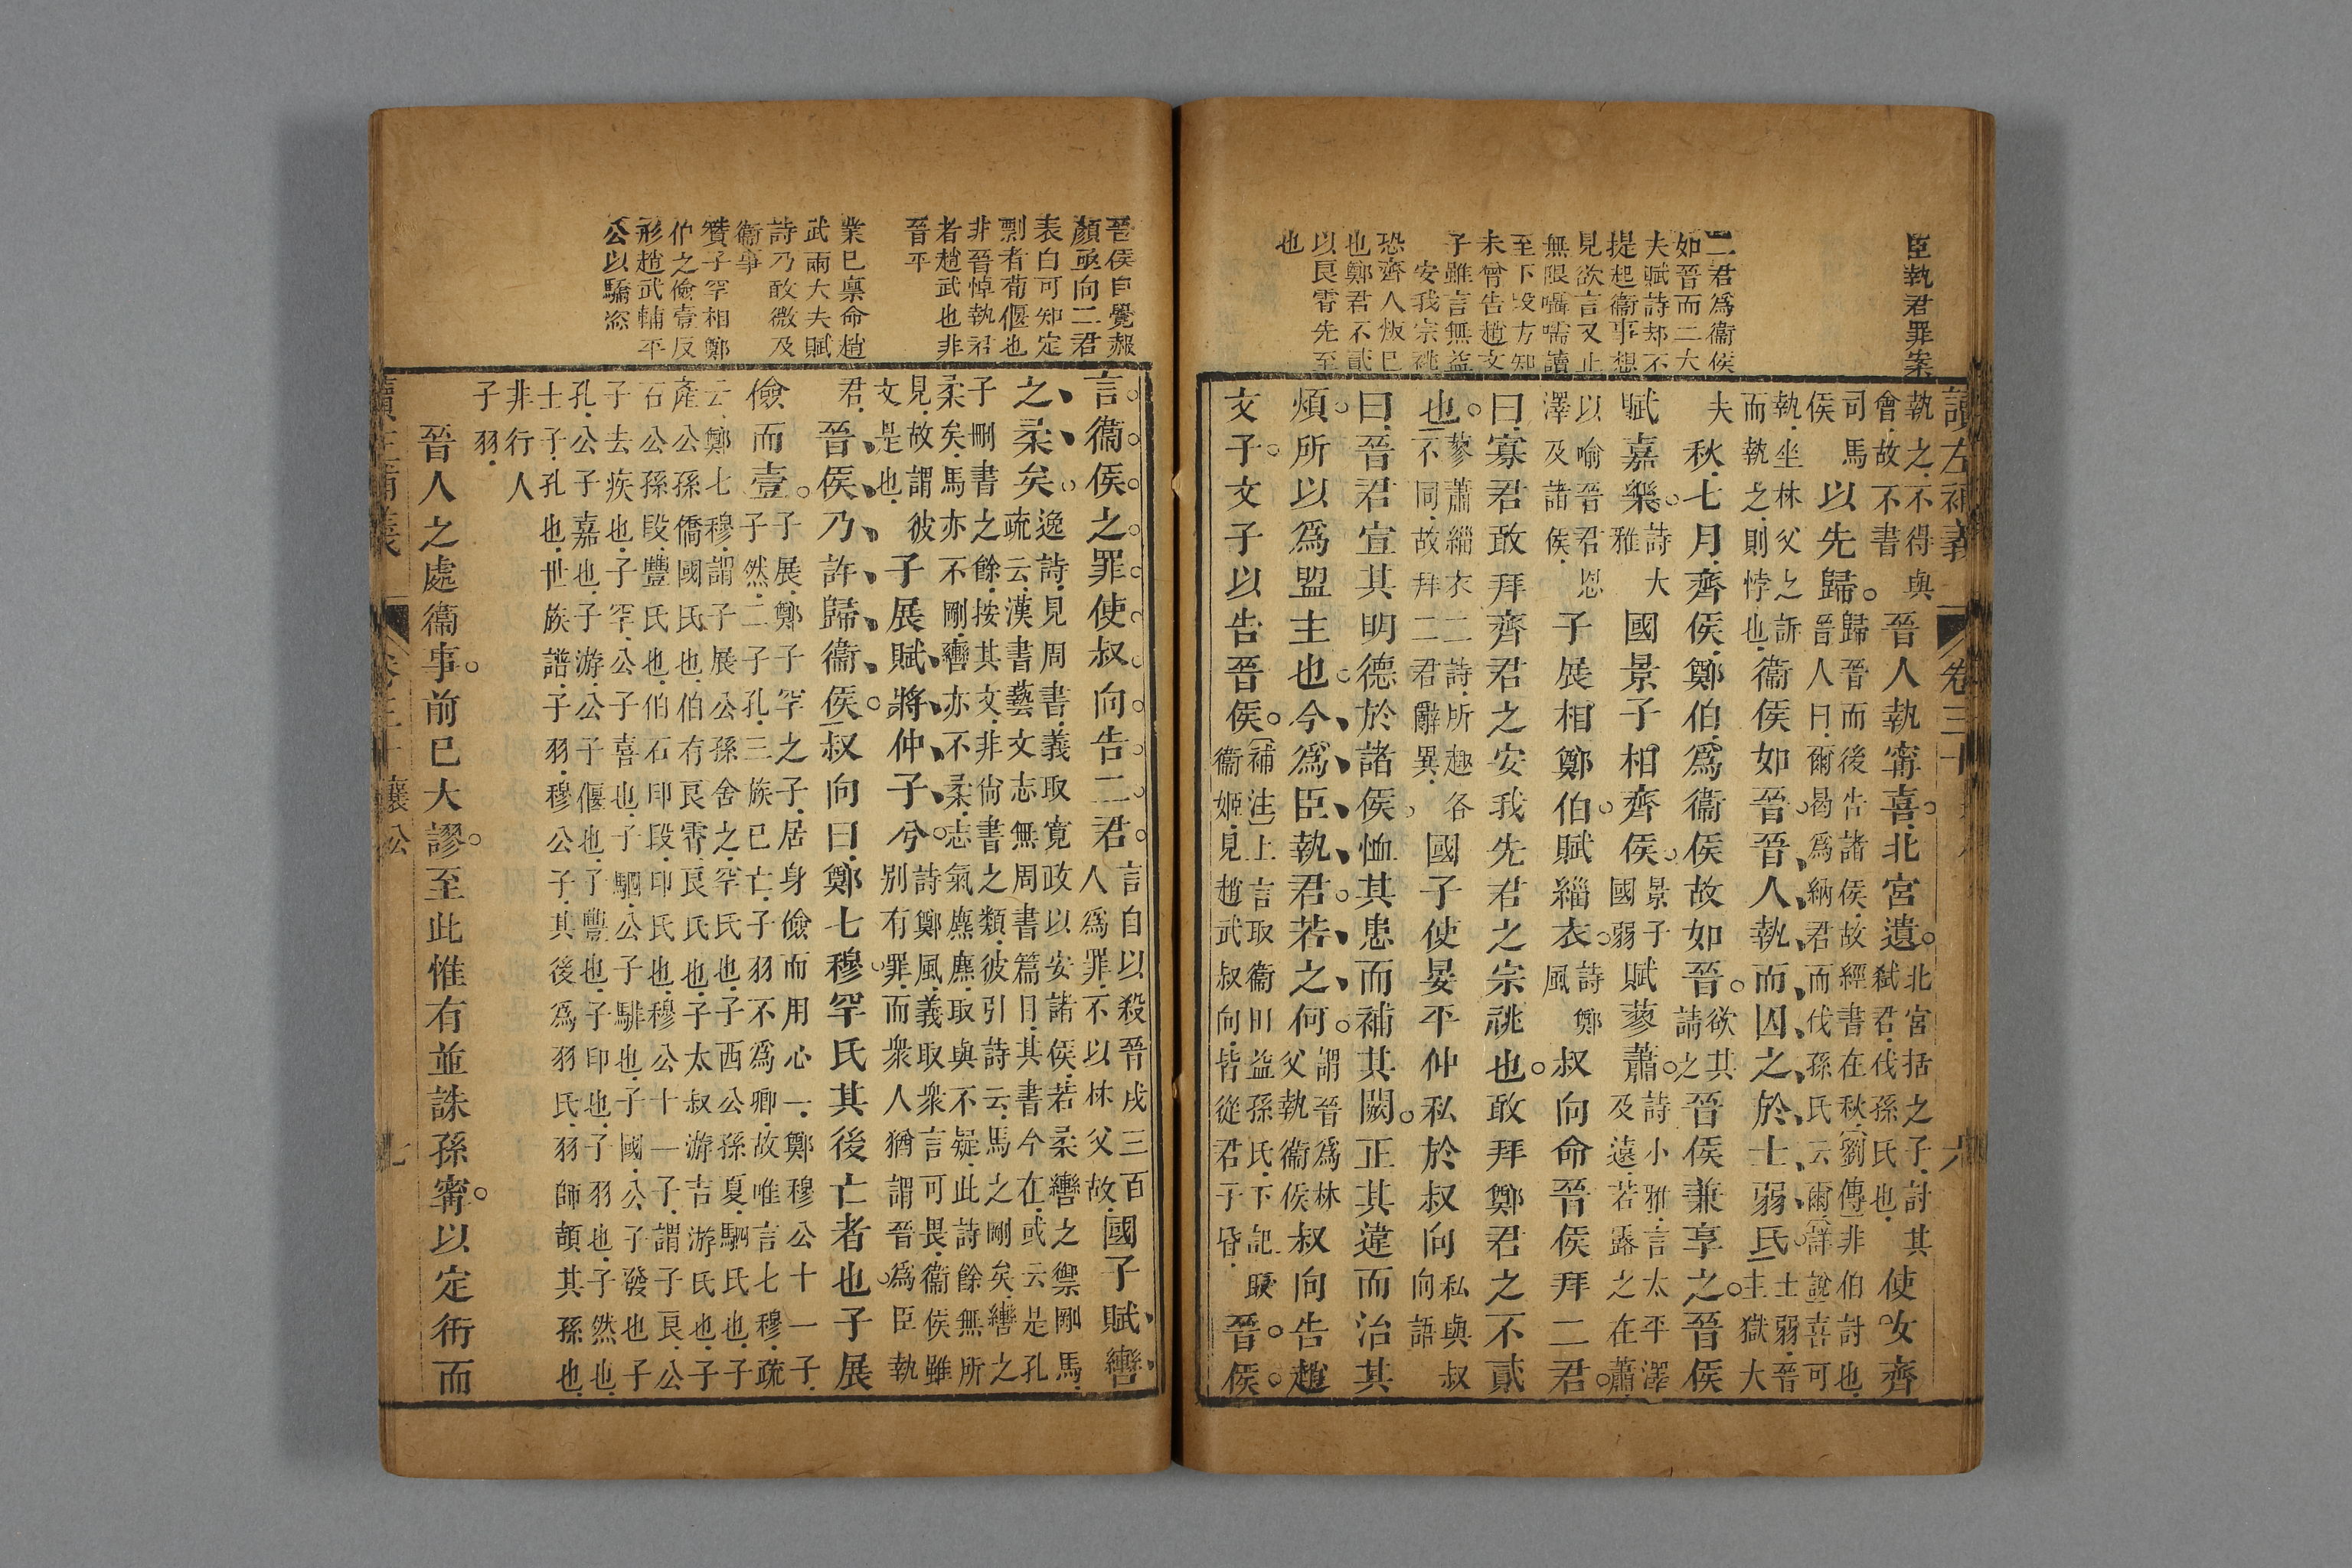 臣執君罪案
二君爲衞侯
如晉而二大
夫賦詩却不
提起衞事想
見欲言又止
無限囁嚅讀
至下投方知
未曾告趙文
子雖言無益
安我宗祧
恐齊人叛已
也鄭君不貳
以良霄先至
也
讀左補義 卷三十 六
執之不得與會故不書晉人執甯喜北宮遺北宮括之子討其弑君伐孫氏也使女齊
司馬侯以先歸歸晉而後告諸侯故經書在秋劉傳非伯討也晉人曰爾曷爲納君而伐孫氏云爾詳說喜可
執坐林父之訴而執之則悖也衞侯如晉晉人執而囚之於士弱氏士弱晉主獄大
夫秋七月齊侯鄭伯爲衞侯故如晉欲共請之晉侯兼享之晉侯
賦嘉樂詩大雅國景子相齊侯景子國弱賦蓼蕭詩小雅言太平澤及遠若露之在蕭
以喻晉君恩澤及諸侯子展相鄭伯賦緇衣詩鄭風叔向命晉侯拜二君
曰寡君敢拜齊君之安我先君之宗祧也敢拜鄭君之不貳
也蓼蕭緇衣二詩所趣各不同故拜二君辭異國子使晏平仲私於叔向私與叔向語
曰晉君宣其明德於諸侯恤其患而補其闕正其違而治其
煩所以爲盟主也今爲臣執君若之何謂晉爲林父執衞侯叔向告趙
文子文子以告晉侯補注上言取衞田益孫氏下記嬖衞姬見趙武叔向皆從君于昏晉侯
晉侯自覺赧
顏亟向二君
表白可知定
剽者荀偃也
非晉悼執君
者趙武也非
晉平
業已稟命趙
武兩大夫賦
詩乃敢微及
衞事
贊子罕相鄭
伯之儉壹反
形趙武輔平
公以驕淫
言衞侯之罪使叔向告二君言自以殺晉戍三百人爲罪不以林父故國子賦轡
之柔矣逸詩見周書義取寬政以安諸侯若柔轡之禦剛馬疏云漢書藝文志無周書篇目其書今在或云是孔
子刪書之餘按其文非尚書之類彼引詩云馬之剛矣轡之柔矣馬亦不剛轡亦不柔志氣麃麃取與不疑此詩餘無所
見故謂彼文是也子展賦將仲子兮詩鄭風義取衆言可畏衞侯雖別有罪而衆人猶謂晉爲臣執
君晉侯乃許歸衞侯叔向曰鄭七穆罕氏其後亡者也子展
儉而壹子展鄭子罕之子居身儉而用心一鄭穆公十一子子然二子孔三族已亡子羽不爲卿故唯言七穆疏
云鄭七穆謂子展公孫舍之罕氏也子西公孫夏駟氏也子產公孫僑國氏也伯有良霄良氏也子太叔游吉游氏也子
石公孫段豐氏也伯石印段印氏也穆公十一子謂子良公子去疾也子罕公子喜也子駟公子騑也子國公子發也子
孔公子嘉也子游公子偃也子豐也子印也子羽也子然也士子孔也世族譜子羽穆公子其後爲羽氏羽師頡其孫也
非行人子羽
晉人之處衞事前已大謬至此惟有並誅孫甯以定衎而
讀左補義 卷三十 襄公 七